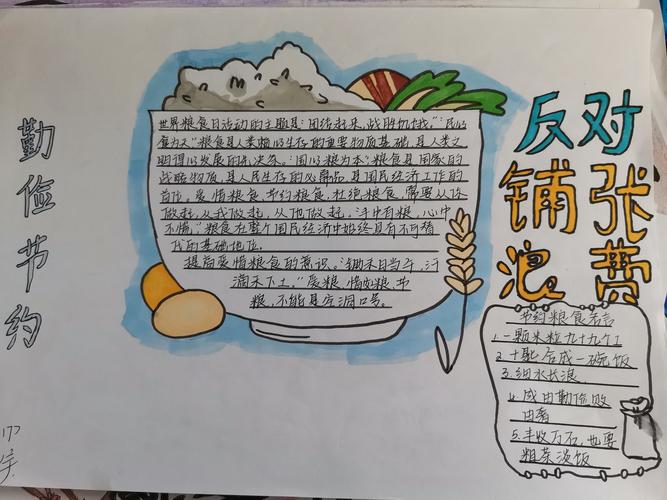 勤俭节约
世界粮食日活动的主题是:团结起来,战胜饥饿。"民以
食为天"粮食是人类赖以生存的重要物质基础,是人类文
明得以发展的先决条。国以粮为本"粮食是国家的
战略物质,是人民生存的必需品,是国民经济工作的
首位。爱惜粮食、节约粮食,杜绝粮食,需要从你
做起,从我做起,从他做起。"手中有粮,心中
不慌。"粮食在整个国民经济中始终具有不可替
代的基础地位。
提高爱惜粮食的意识。"锄禾日当午,汗
滴禾下土。"爱粮、惜粮、节
粮,不能是空洞口号。
反对
铺张
浪费
节约粮食名言
1.一颗米粒九十九个工
2.十 合成一碗饭
3.细水长浪
4.成由勤俭败
由奢
5.丰收万石,也要
粗茶淡饭